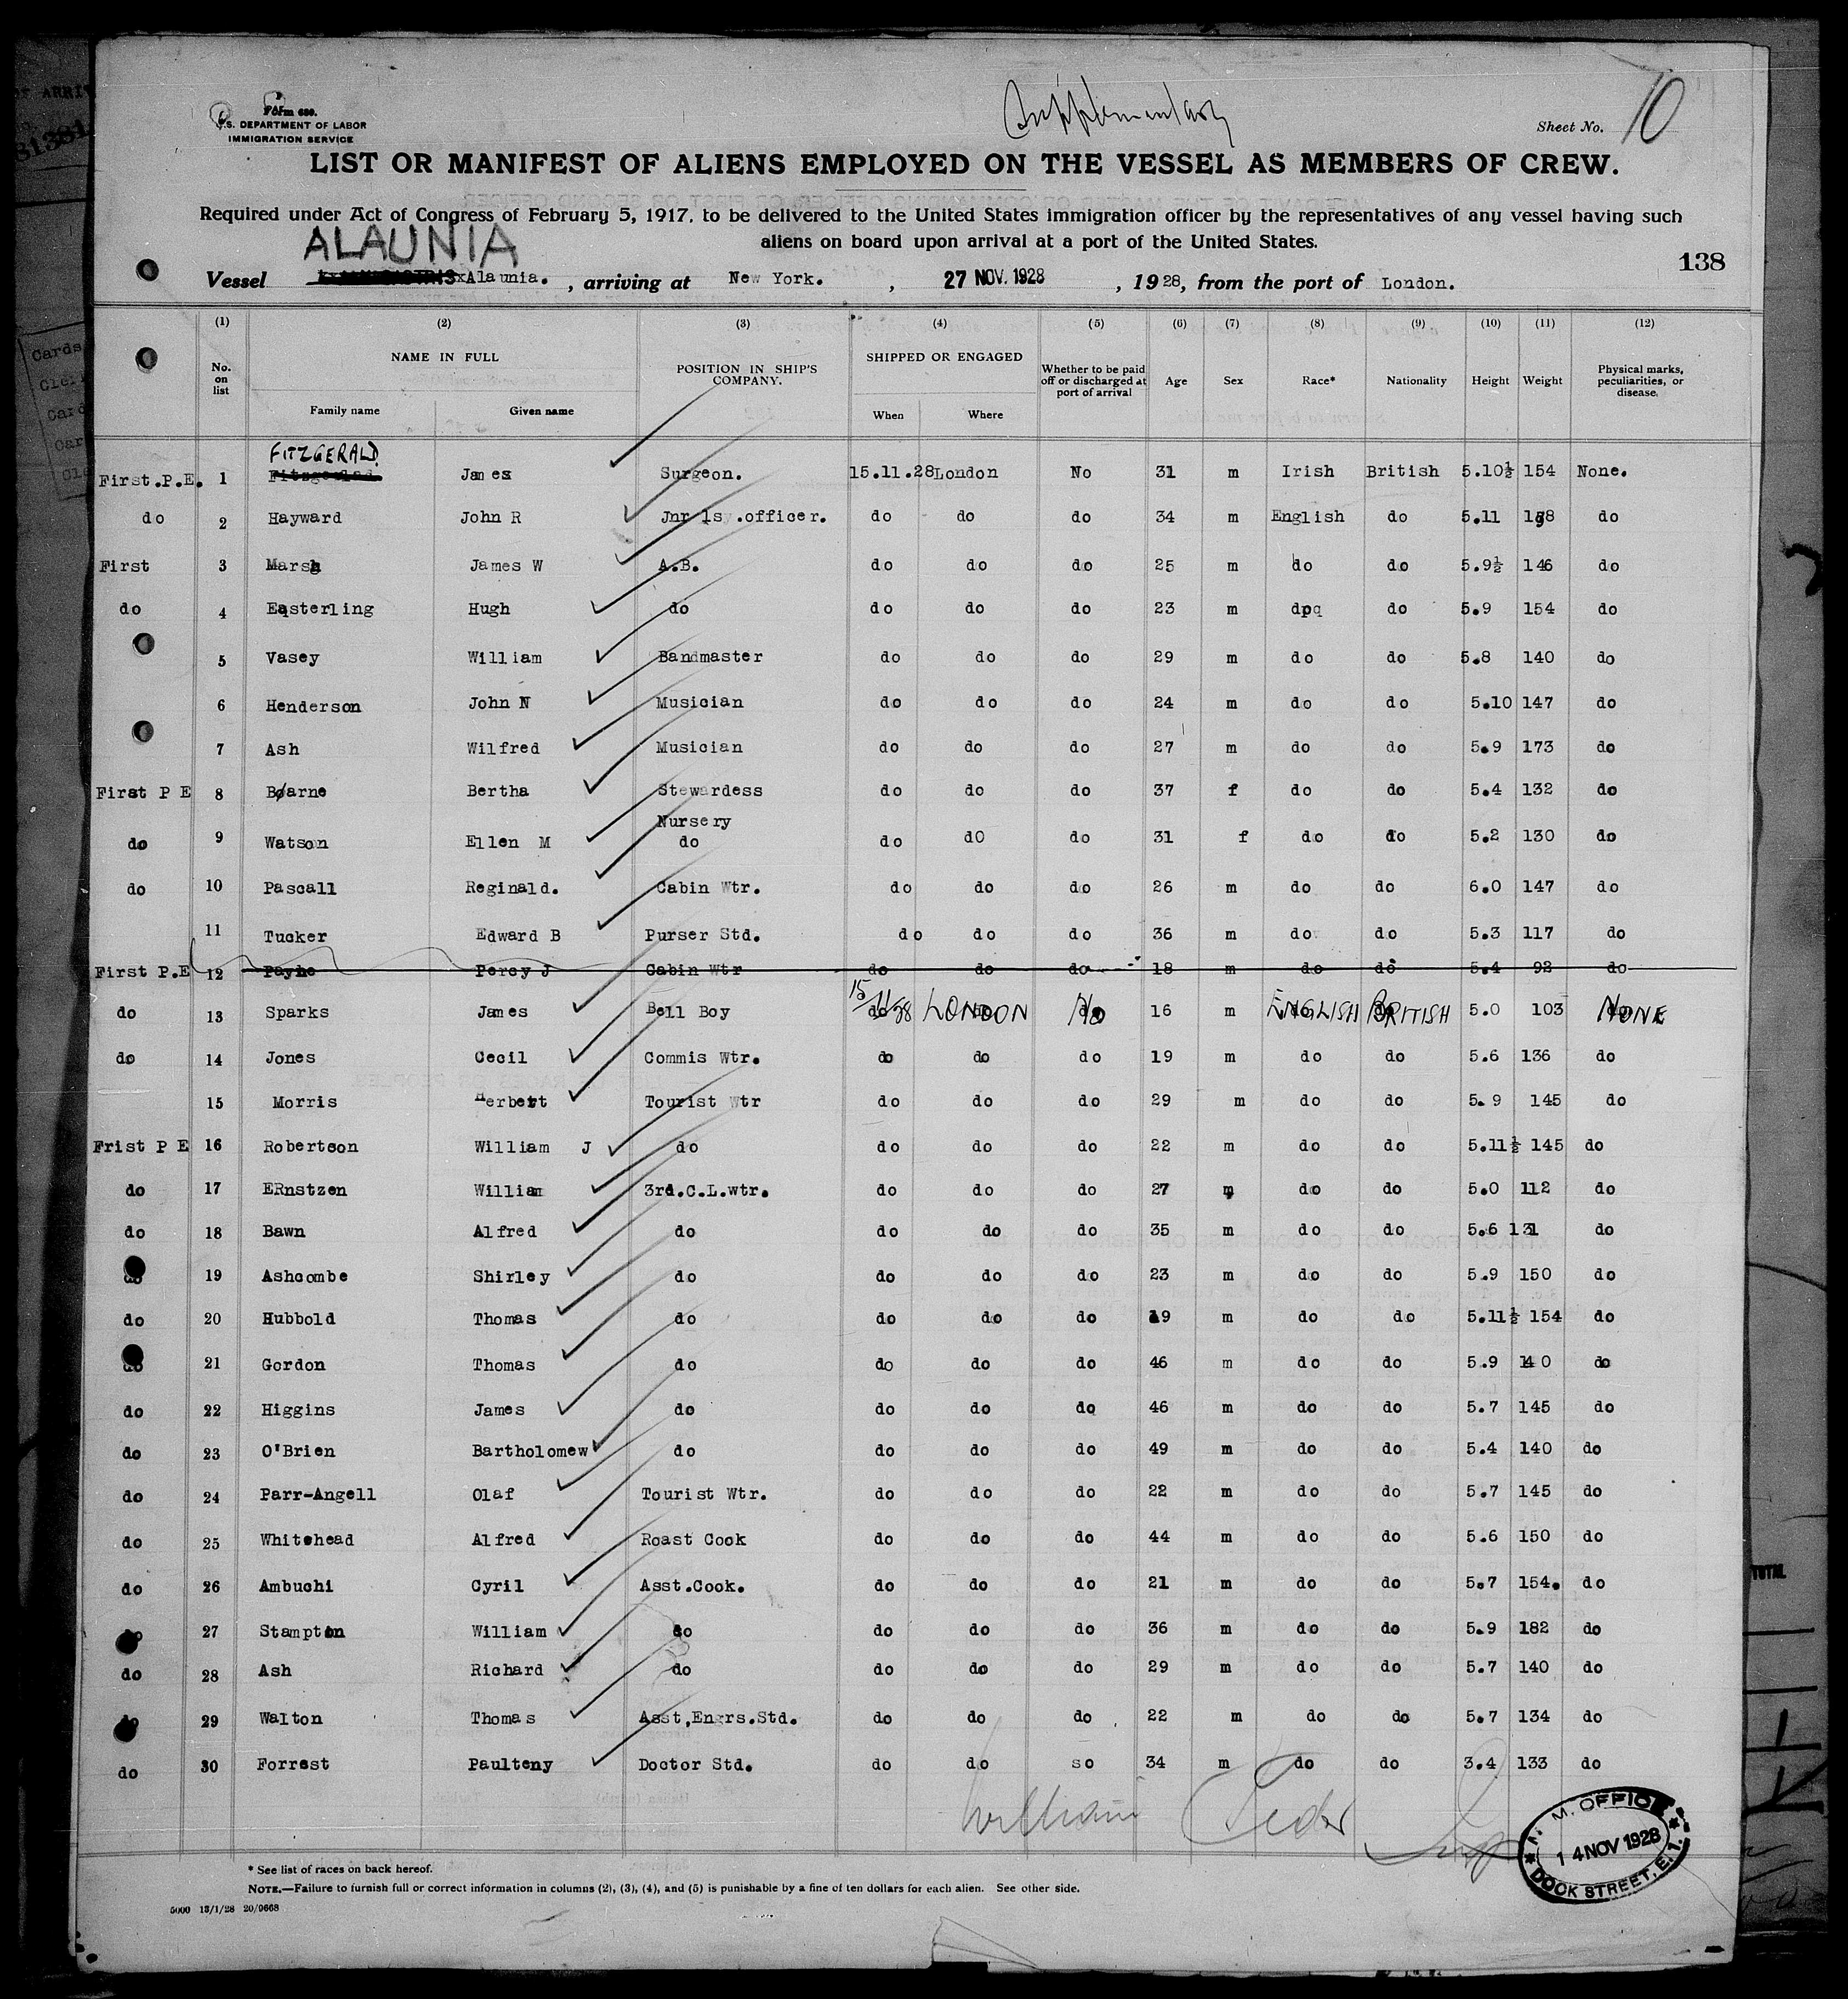 Supplementary
10
Form 689.
U.S. DEPARTMENT OF LABOR
IMMIGRATION SERVICE
Sheet No.
LIST OR MANIFEST OF ALIENS EMPLOYED ON THE VESSEL AS MEMBERS OF CREW.
Required under Act of Congress of February 5, 1917, to be delivered to the United States immigration officer by the representatives of any vessel having such
aliens on board upon arrival at a port of the United States.
ALAUNIA
138
Vessel Alaunia. , arriving at New York. , 27 NOV. 1928 , 1928, from the port of London.
(1) (2) (3) (4) (5) (6) (7) (8) (9) (10) (11) (12)
No. on list NAME IN FULL Family name Given name POSITION IN SHIP'S COMPANY. SHIPPED OR ENGAGED When Where Whether to be paid off or discharged at port of arrival Age Sex Race* Nationality Height Weight Physical marks, peculiarities, or disease.
FITZGERALD
First.P.E. 1 James Surgeon. 15.11.28 London No 31 m Irish British 5.10½ 154 None.
do 2 Hayward John R Jnr 1s .officer. do do do 34 m English do 5.11 do
First 3 Marsh James W A.B. do do do 25 m do do 5.9½ 146 do
do 4 Easterling Hugh do do do do 23 m do 5.9 154 do
5 Vasey William Bandmaster do do do 29 m do do 5.8 140 do
6 Henderson John N Musician do do do 24 m do do 5.10 147 do
7 Ash Wilfred Musician do do do 27 m do do 5.9 173 do
First P E 8 Bearne Bertha Stewardess do do do 37 f do do 5.4 132 do
do 9 Watson Ellen M Nursery do do dO do 31 f do do 5.2 130 do
do 10 Pascall Reginald. Cabin Wtr. do do do 26 m do do 6.0 147 do
11 Tucker Edward B Purser Std. do do do 36 m do do 5.3 117 do
First P.E 12 Payne Percy J Cabin Wtr do do do 18 m do do 5.4 92 do
do 13 Sparks James Bell Boy 15/11/28 LONDON No 16 m ENGLISH BRITISH 5.0 103 NONE
do 14 Jones Cecil Commis Wtr. do do do 19 m do do 5.6 136 do
15 Morris Herbert Tourist Wtr do do do 29 m do do 5.9 145 do
Frist P E 16 Robertson William J do do do do 22 m do do 5.11½ 145 do
do 17 ERnstzen William 3rd.C.L.wtr. do do do 27 m do do 5.0 112 do
do 18 Bawn Alfred do do do do 35 m do do 5.6 131 do
do 19 Ashcombe Shirley do do do do 23 m do do 5.9 150 do
do 20 Hubbold Thomas do do do do 19 m do do 5.11½ 154 do
do 21 Gordon Thomas do do do do 46 m do do 5.9 140 do
do 22 Higgins James do do do do 46 m do do 5.7 145 do
do 23 O'Brien Bartholomew do do do do 49 m do do 5.4 140 do
do 24 Parr-Angell Olaf Tourist Wtr. do do do 22 m do do 5.7 145 do
do 25 Whitehead Alfred Roast Cook do do do 44 m do do 5.6 150 do
do 26 Ambuchi Cyril Asst.Cook. do do do 21 m do do 5.7 154. do
do 27 Stampton William do do do do 36 m do do 5.9 182 do
do 28 Ash Richard do do do do 29 m do do 5.7 140 do
do 29 Walton Thomas Asst,Engrs.Std. do do do 22 m do do 5.7 134 do
do 30 Forrest Paulteny Doctor Std. do do so 34 m do do 3.4 133 do
William
M. M. OFFICE
14 NOV 1928
DOCK STREET, E.1.
* See list of races on back hereof.
NOTE.—Failure to furnish full or correct information in columns (2), (3), (4), and (5) is punishable by a fine of ten dollars for each alien. See other side.
5000 13/1/28 20/9668
TOTAL